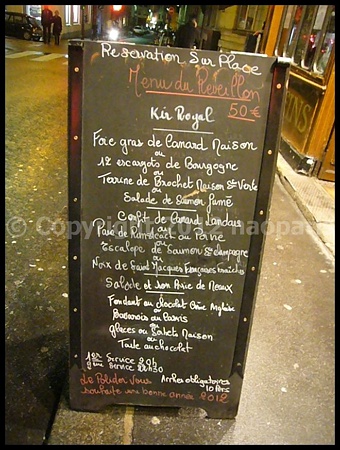 Reservation Sur Place
Menu du Reveillon
50€
Kir Royal
Foie gras de Canard Maison
ou
12 escargots de Bourgogne
ou
Terrine de Brochet Maison Sce Verte
ou
Salade de Saumon Fumé
Confit de Canard Landais
ou
Pavé de Rumsteack au Poivre
ou
Escalope de Saumon Sce Campagne
ou
Noix de Saint Jacques Françaises fraîches
Salade et son Brie de Meaux
Fondant au chocolat Crème Anglaise
ou
Bavarois au Cassis
ou
glaces ou Sorbets Maison
ou
Tarte au chocolat
1er Service 20h
2ème Service 22h30
Le Polidor Vous
Arrhes obligatoires
10 Pers
souhaite une bonne année 2012
© Copyright 2012 haopa